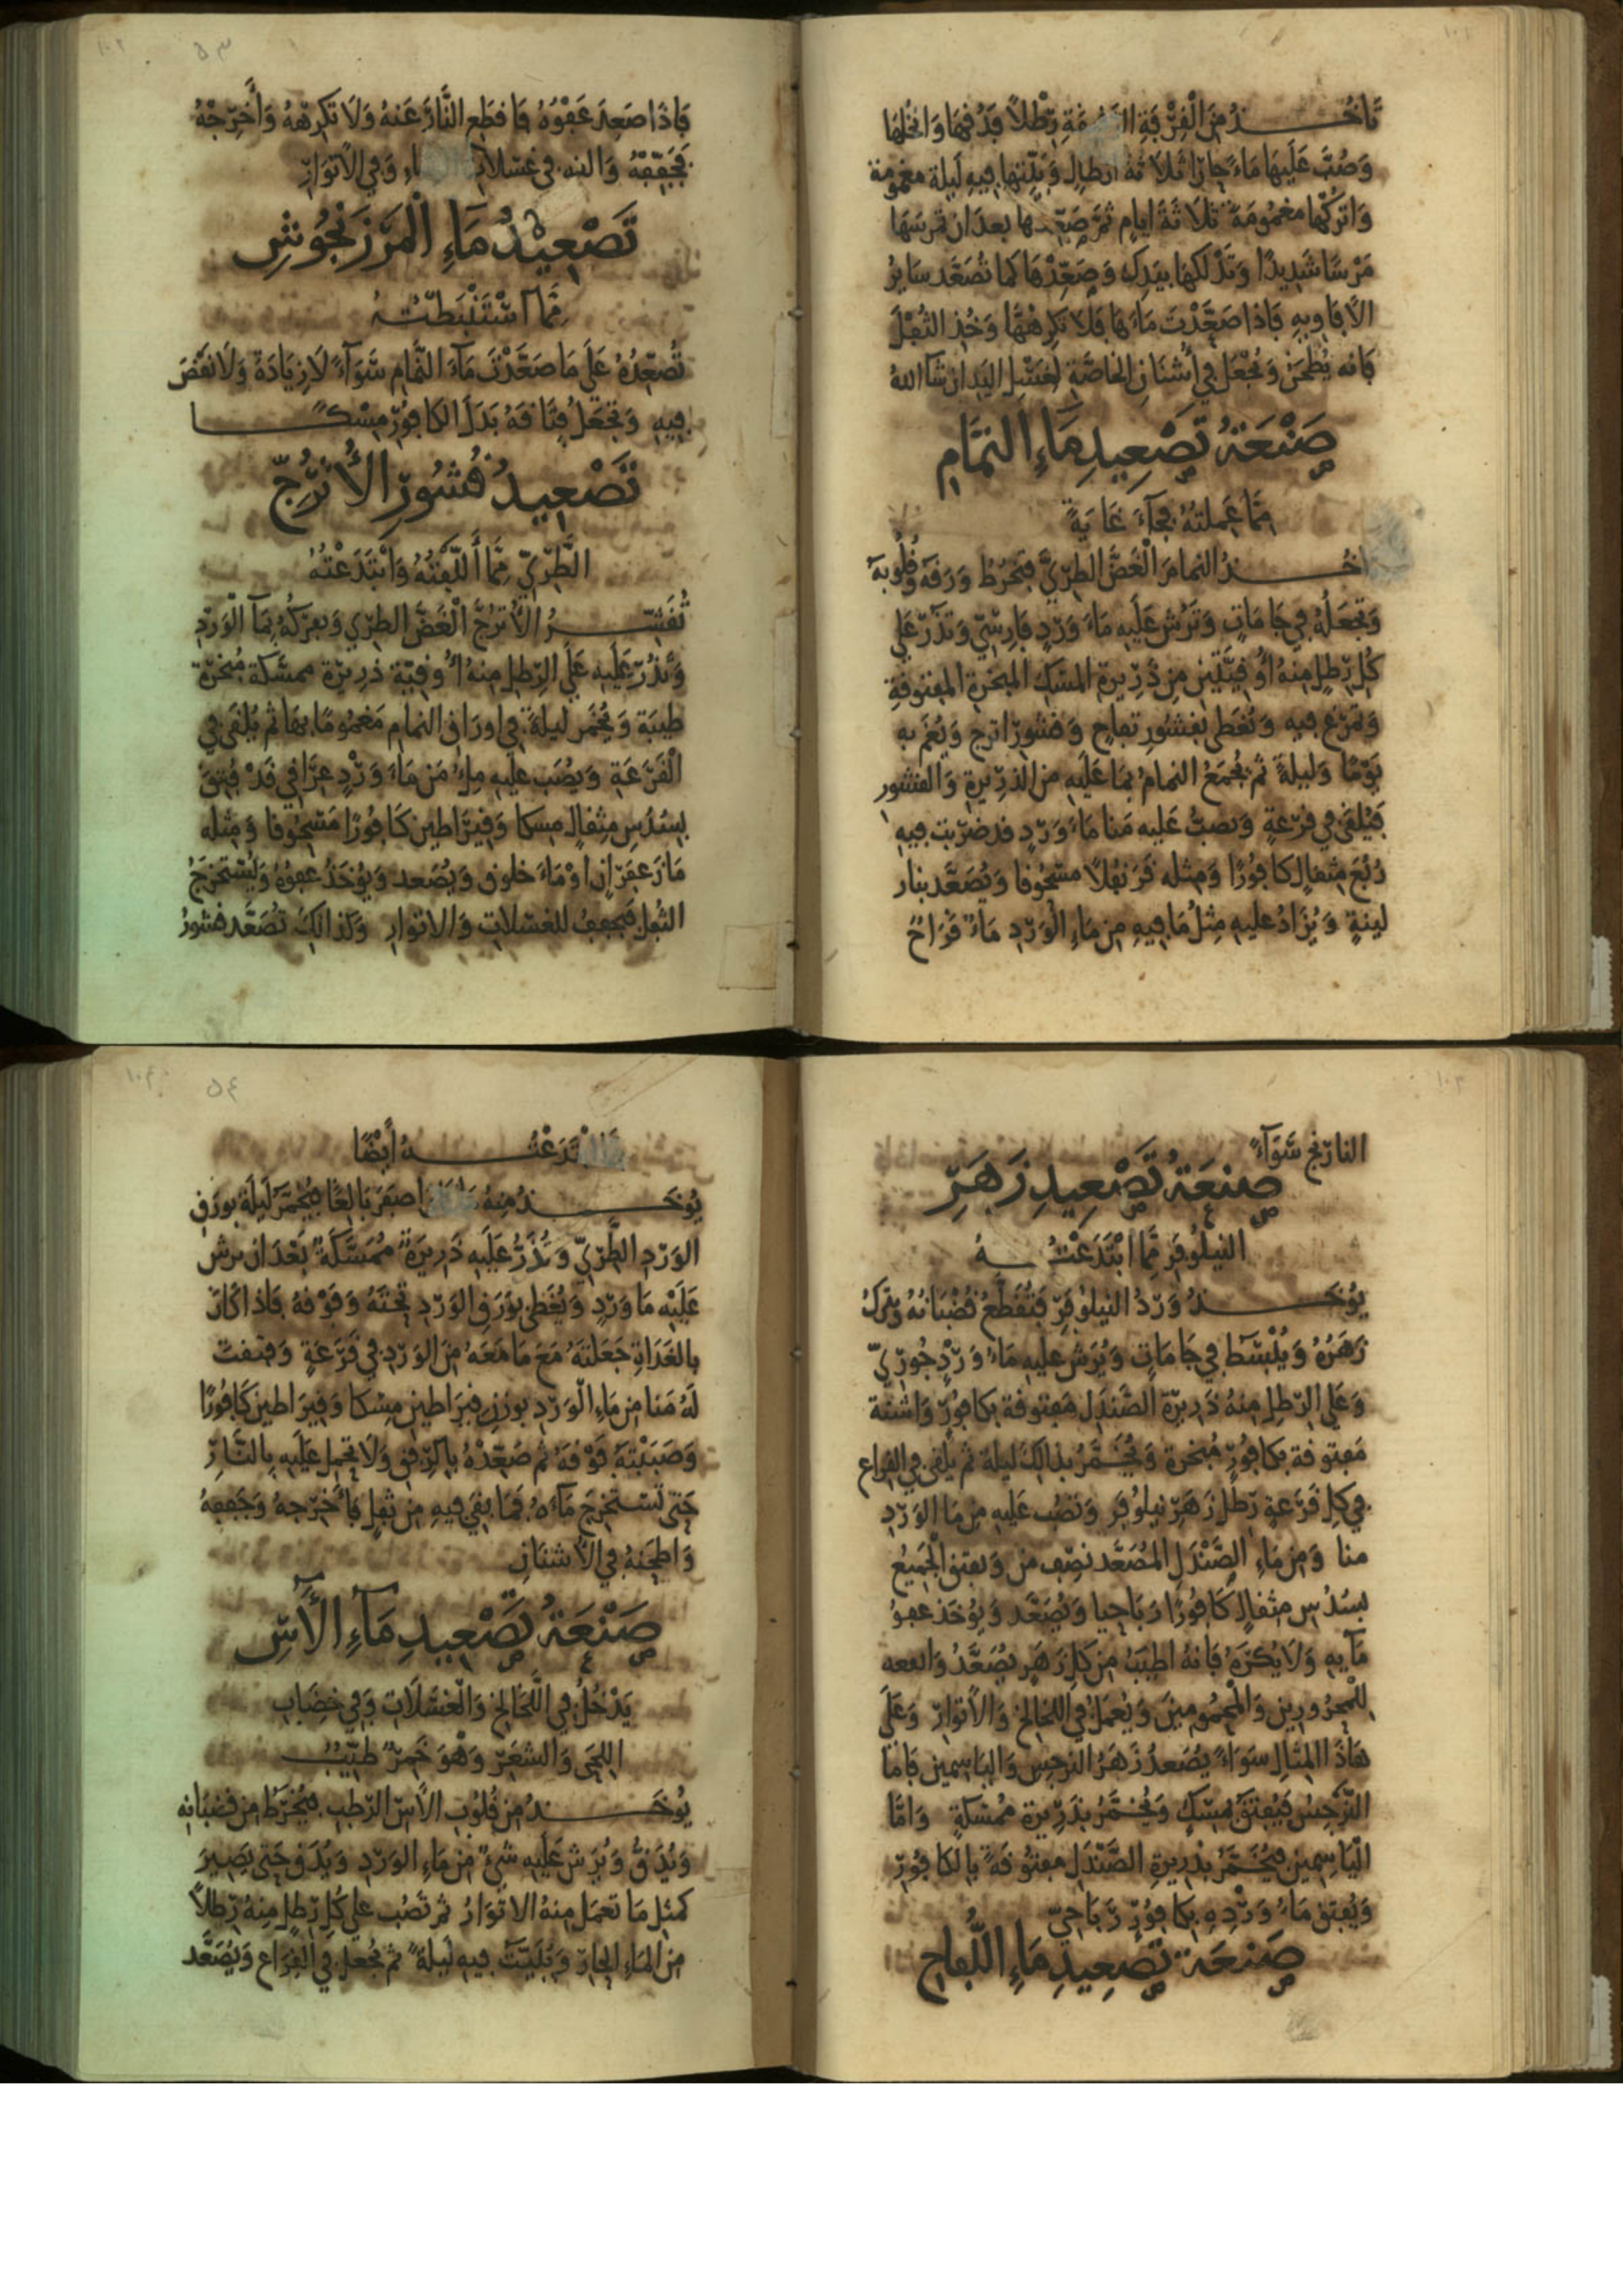 تَاخُـــذُ مِنَ الْقِرْفَةِ رِطْلاً فَدُقهَا وَانْخُلهَا
وَصُبَّ عَلَيهَا مَاءً حَارّا ثَلاَثةَ ارطالٍ وَبَيِّتهَا فِيهِ لَيلة مغمومة
وَاتركها مغمُومَةً ثلاَثَةَ ايامٍ ثمَّ صَعِّدها بعدَ ان تمرسَهَا
مَرْسًا شَدِيدًا وَتَدْلكهَا بِيَدِك وَصَعِّدْهَا كما تُصَعَّد سَايِرُ
الافَاوِيهِ فَاذا صَعَّدْتَ مَاءَهَا فَلاَ تكرهْهَا وَخُذِ الثُّفْلَ
فَانه يُطحَنُ وَيُجْعَلُ فِي أُشْنَانِ الخَاصَّةِ لغسْلِ اليَدِ ان شَا اللهُ
صَنْعَةُ تَصْعِيدِ مَاءِ النمَّامِ
مِمَّا عَمِلتهُ فَجَآءَ غَايَةً
تاخُـــذُ النمامَ الْغَضَّ الطرِيَّ فتخرُطُ وَرَقَهُ وَقُلُوبهُ
وَتجعَلهُ فِي جَامَاتٍ وَتَرُش عَلَيهِ مَاءَ وَردٍ فَارِسيٍّ وَتَذُرّ عَلى
كُلّ رِطلٍ مِنهُ اُوقِيَّتَيْنِ مِن ذَرِيرَةِ المسْكِ المبخرَةِ المفتوقةِ
وَتمرّغ فيهِ وَتُغَطى بقشُورِ تفاحٍ وَقشُورِ اترج وَيُغَم بهِ
يَوْمًا وَليلةً ثم يُجْمَعُ النمامُ بمَا عَلَيهِ مِنَ الذرِيرَةِ وَالقشُور
فَيُلقى فِي قَرعَةٍ وَيصبُّ عَليه مَنا مَاءَ وَردٍ قد ضرَبت فيه
رُبْعَ مثقالٍ كافُورًا وَمِثله قَرَنفُلاً مسْحُوقا وَيُصَعَّد بنار
لينةٍ وَيُزَادُ عليهِ مِثلُ مَا فِيهِ مِن مَاءِ الْوَردِ مَاءً قَرَاحً
فَاذَا صَعدَ عَفْوُهُ فَاقطَعِ النَّارَ عَنهُ وَلاَ تكرِههُ وَأَخرِجْهُ
فجَفِّفهُ وَالقه فِي غسْلاتِ وَفِي الاتوَارِ
تَصْعِيْدُ مَاءِ الْمَرْزَنْجُوْشِ
مِمَّا اسْتَنْبَطْتُـهُ
تُصَعِّدُهُ عَلَى مَا صَعَّدْتَ مَآءَ النَّمَام سَوَآءً لاَ زِيَادَةَ وَلاَ نَقصَ
فيهِ وَتجعَلُ فِتَاقَهُ بَدَلَ الكافُورِ مِسْكًــا
تَصْعِيدُ قُشُورِ الأُترُجّ
الطَّرِيِّ مِمَّا أَلَّفْتُهُ وَابْتَدَعْتُهُ
تُقَشِّـــرُ الاُترُجَّ الْغَضَّ الطرِي وَتعرُكُهُ بمَآ الْوَردِ
وَتذُرّ عَلَيهِ عَلَى الرِّطلِ مِنهُ اُوقيّة ذرِيرَة ممسّكة مُبخّرة
طيبَة وَيُخَمر ليلةً فِي اورَاقِ النمام مَغمُومًا بهَا ثم يُلقَى فِي
الْقَرْعَةِ وَيُصَب عليهِ مِلءُ مَنٍ مَاءَ وَردٍ عِرَاقي قَدْ فُتِقَ
بسُدُسِ مِثقالٍ مِسكا وَقِيرَاطين كَافُورًا مَسحُوقا وَمِثله
مَاءَ زعفَرانٍ اوْ مَاءَ خلوق وَيُصَعد وَيُؤخَذُ عفوُهُ وَيُسْتخرَجُ
الثفلُ فيجففُ للغسْلاتِ وَالاتوارِ وَكذَالِكَ تُصَعَّد قشورُ
النارنج سَوَآءً
صَنعَةُ تَصْعِيدِ زَهَرِ
النيلُوفَرِ مِمَّا ابْتَدَعْتُـــهُ
يُوخَـــذُ وَردُ النيلوْفَرِ فَتُقطَّعُ قُضْبَانُهُ وَيترَكُ
زَهَرُهُ وَيُلْبسَط فِي جَامَاتٍ وَيُرَشّ عليهِ مَاءُ وَرْدٍ جُورِيّ
وَعَلى الرّطلِ مِنهُ ذَرِيرَة الصَّنْدَلِ مَفتوقة بكافُورٍ وَاشنَة
مَفتوقة بكافُورٍ مُبخرَة وَيُخَـمَّرُ بذَالكَ ليلة ثم يُلقى فِي القِرَاع
فِي كل قَرعَةٍ رِطلُ زَهَرِ نِيلُوفَر وَتصُب عَليهِ مِن مَا الوَردِ
منا وَمِن مَاءِ الصَّنْدَلِ المُصَعَّد نصِف مَن وَيفتق الْجَمِيعُ
بسُدُسِ مثقالٍ كَافُورًا رَبَاحِيا وَيُصَعَّد وَيُؤخَذ عفوُ
مَآيهِ وَلاَ يُكْرَهُ فَانهُ اطيَبُ مِن كلّ زَهَرٍ يُصَعَّدُ وَانفعه
لِلْمَحرُورِين وَالْمَحمُومِينَ وَيُعمَلُ فِي اللخَالِخ وَالاتوَارِ وَعَلَى
هَاذَا المِثالِ سَوَاءً يُصَعدُ زَهَرُ النرجِسِ وَاليَاسِمين فَامَّا
النَّرجِسُ فيُفتَقُ بمِسْكٍ وَيُخـمَّرُ بذَرِيرةٍ مُمسَّكةٍ وَامَّا
الْيَاسِمِينُ فيُخَـمَّرُ بذرِيرةِ الصَّنْدَلِ مفتُوقَةً بالكَافُورِ
وَيُفتق مَاءُ وَرْدِهِ بكافُورٍ رَبَاحِيّ
صَنعَةُ تَصعِيدِ مَاءِ اللُّفاحِ
ابْتَدَعْتُـــهُ أَيْضًا
يُوخَـــذُ مِنهُ اصفَرَ بَالِغًا فيُخمَّرُ لَيلَة بوَرَقِ
الوَردِ الطَّرِيّ وَتُذَرُّ عَلَيهِ ذَرِيرَةٌ مُمَسَّكَةٌ بَعْدَ ان يرش
عَلَيْه مَا وَردٍ وَيُغَطى بوَرَقِ الوَردِ تحتَهُ وَفَوْقهُ فَاذا كَانَ
بالغَدَاةِ جَعَلتَهُ مَعَ مَا مَعَهُ مِنَ الوَردِ فِي قَرعَةٍ وَفتَقتَ
لَهُ مَنا مِن مَاءِ الْوَردِ بوَزنِ قيرَاطينِ مِسْكا وَقِيرَاطين كَافُورًا
وَصَبَبْتَهُ فَوْقهُ ثم صَعِّدْهُ بالرِّفقِ وَلاَ تحمِل عَلَيهِ بالنَّارِ
حَتى تَسْتخرِجَ مَآءَهُ فمَا بقيَ فيهِ مِن ثفلٍ فَأَخرِجهُ وَجَففهُ
وَاطحَنهُ فِي الاُشنَانِ
صَنْعَةُ تَصْعِيدِ مَآءِ الاَسِ
يَدْخُلُ فِي اللَّخَالِخ وَالْغسْلَاتِ وَفِي خِضَابِ
اللِّحَى وَالشعَرِ وَهْوَ خَمِرٌ طيِّبٌ
يُوخَـــذُ مِن قُلوُبِ الاَسِ الرّطبِ فيُخرَطُ مِن قضبَانِه
وَيُدَقُّ وَيُرَش عَلَيهِ شَيْءٌ مِن مَاءِ الوَردِ وَيُدَق حَتى يَصِيرَ
كمثلِ مَا تعمَل مِنهُ الاتوَارُ ثم تصُب على كُلِّ رِطلٍ مِنهُ رِطلاً
مِنَ المَاءِ الحَارّ وَيُبَيَّتُ فيهِ لَيلَةً ثم يُجعل فِي القِرَاع وَيُصَعَّد